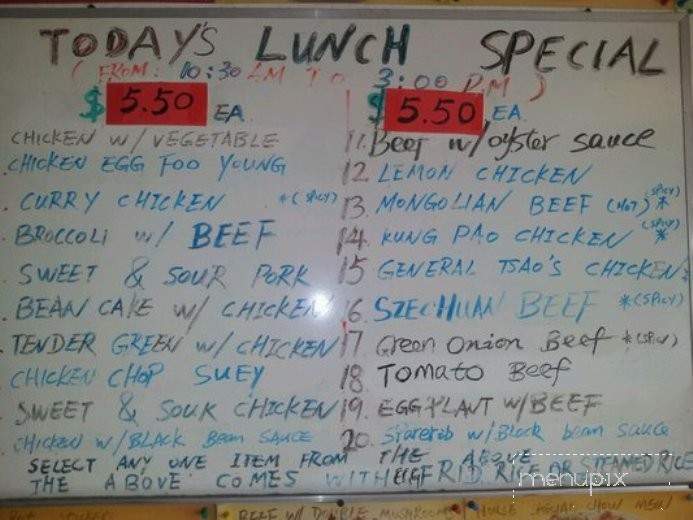 TODAY'S LUNCH SPECIAL
( FROM: 10:30 AM TO 3:00 P.M )
$ 5.50 EA.
CHICKEN W/ VEGETABLE
CHICKEN EGG FOO YOUNG
CURRY CHICKEN *(SPICY)
BROCCOLI W/ BEEF
SWEET & SOUR PORK
BEAN CAKE W/ CHICKEN
TENDER GREEN W/ CHICKEN
CHICKEN CHOP SUEY
SWEET & SOUR CHICKEN
CHICKEN W/BLACK Bean SAUCE
$ 5.50 EA
11. Beef w/oyster sauce
12. LEMON CHICKEN
13. MONGOLIAN BEEF (HOT) * (SPICY)
14. KUNG PAO CHICKEN * (SPICY)
15 GENERAL TSAO'S CHICKEN *
16. SZECHUAN BEEF *(SPICY)
17. Green Onion Beef *(SPICY)
18. Tomato Beef
19. EGGPLANT W/BEEF
20. Sparerib w/Black bean Sauce
SELECT ANY ONE ITEM FROM THE ABOVE
THE ABOVE COMES WITH FRID RICE OR STEAMED RICE
menupix
BEEF W/ DOUBLE MUSHROOM
HOUSE SPECIAL CHOW MEIN